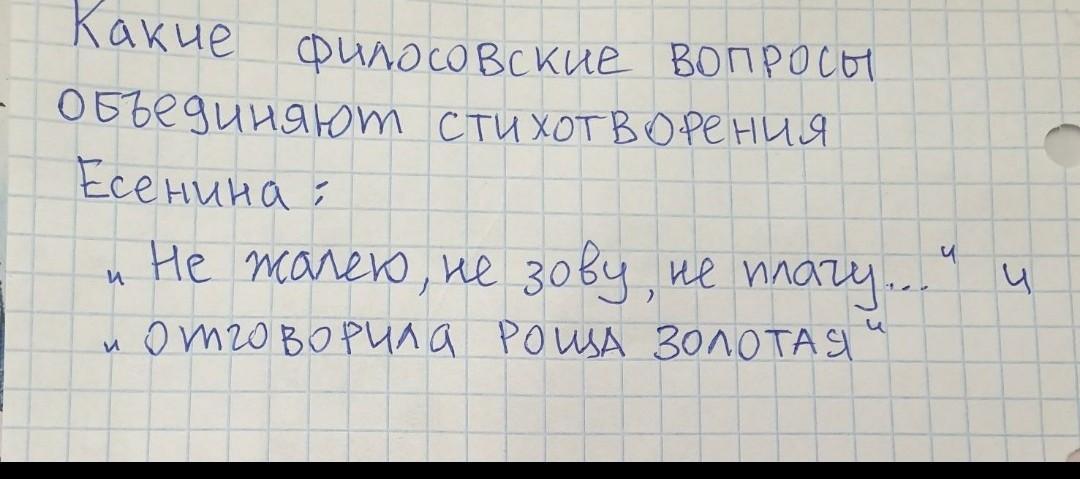 Какие философские вопросы
объединяют стихотворения
Есенина:
„Не жалею, не зову, не плачу..." и
„отговорила роща золотая"